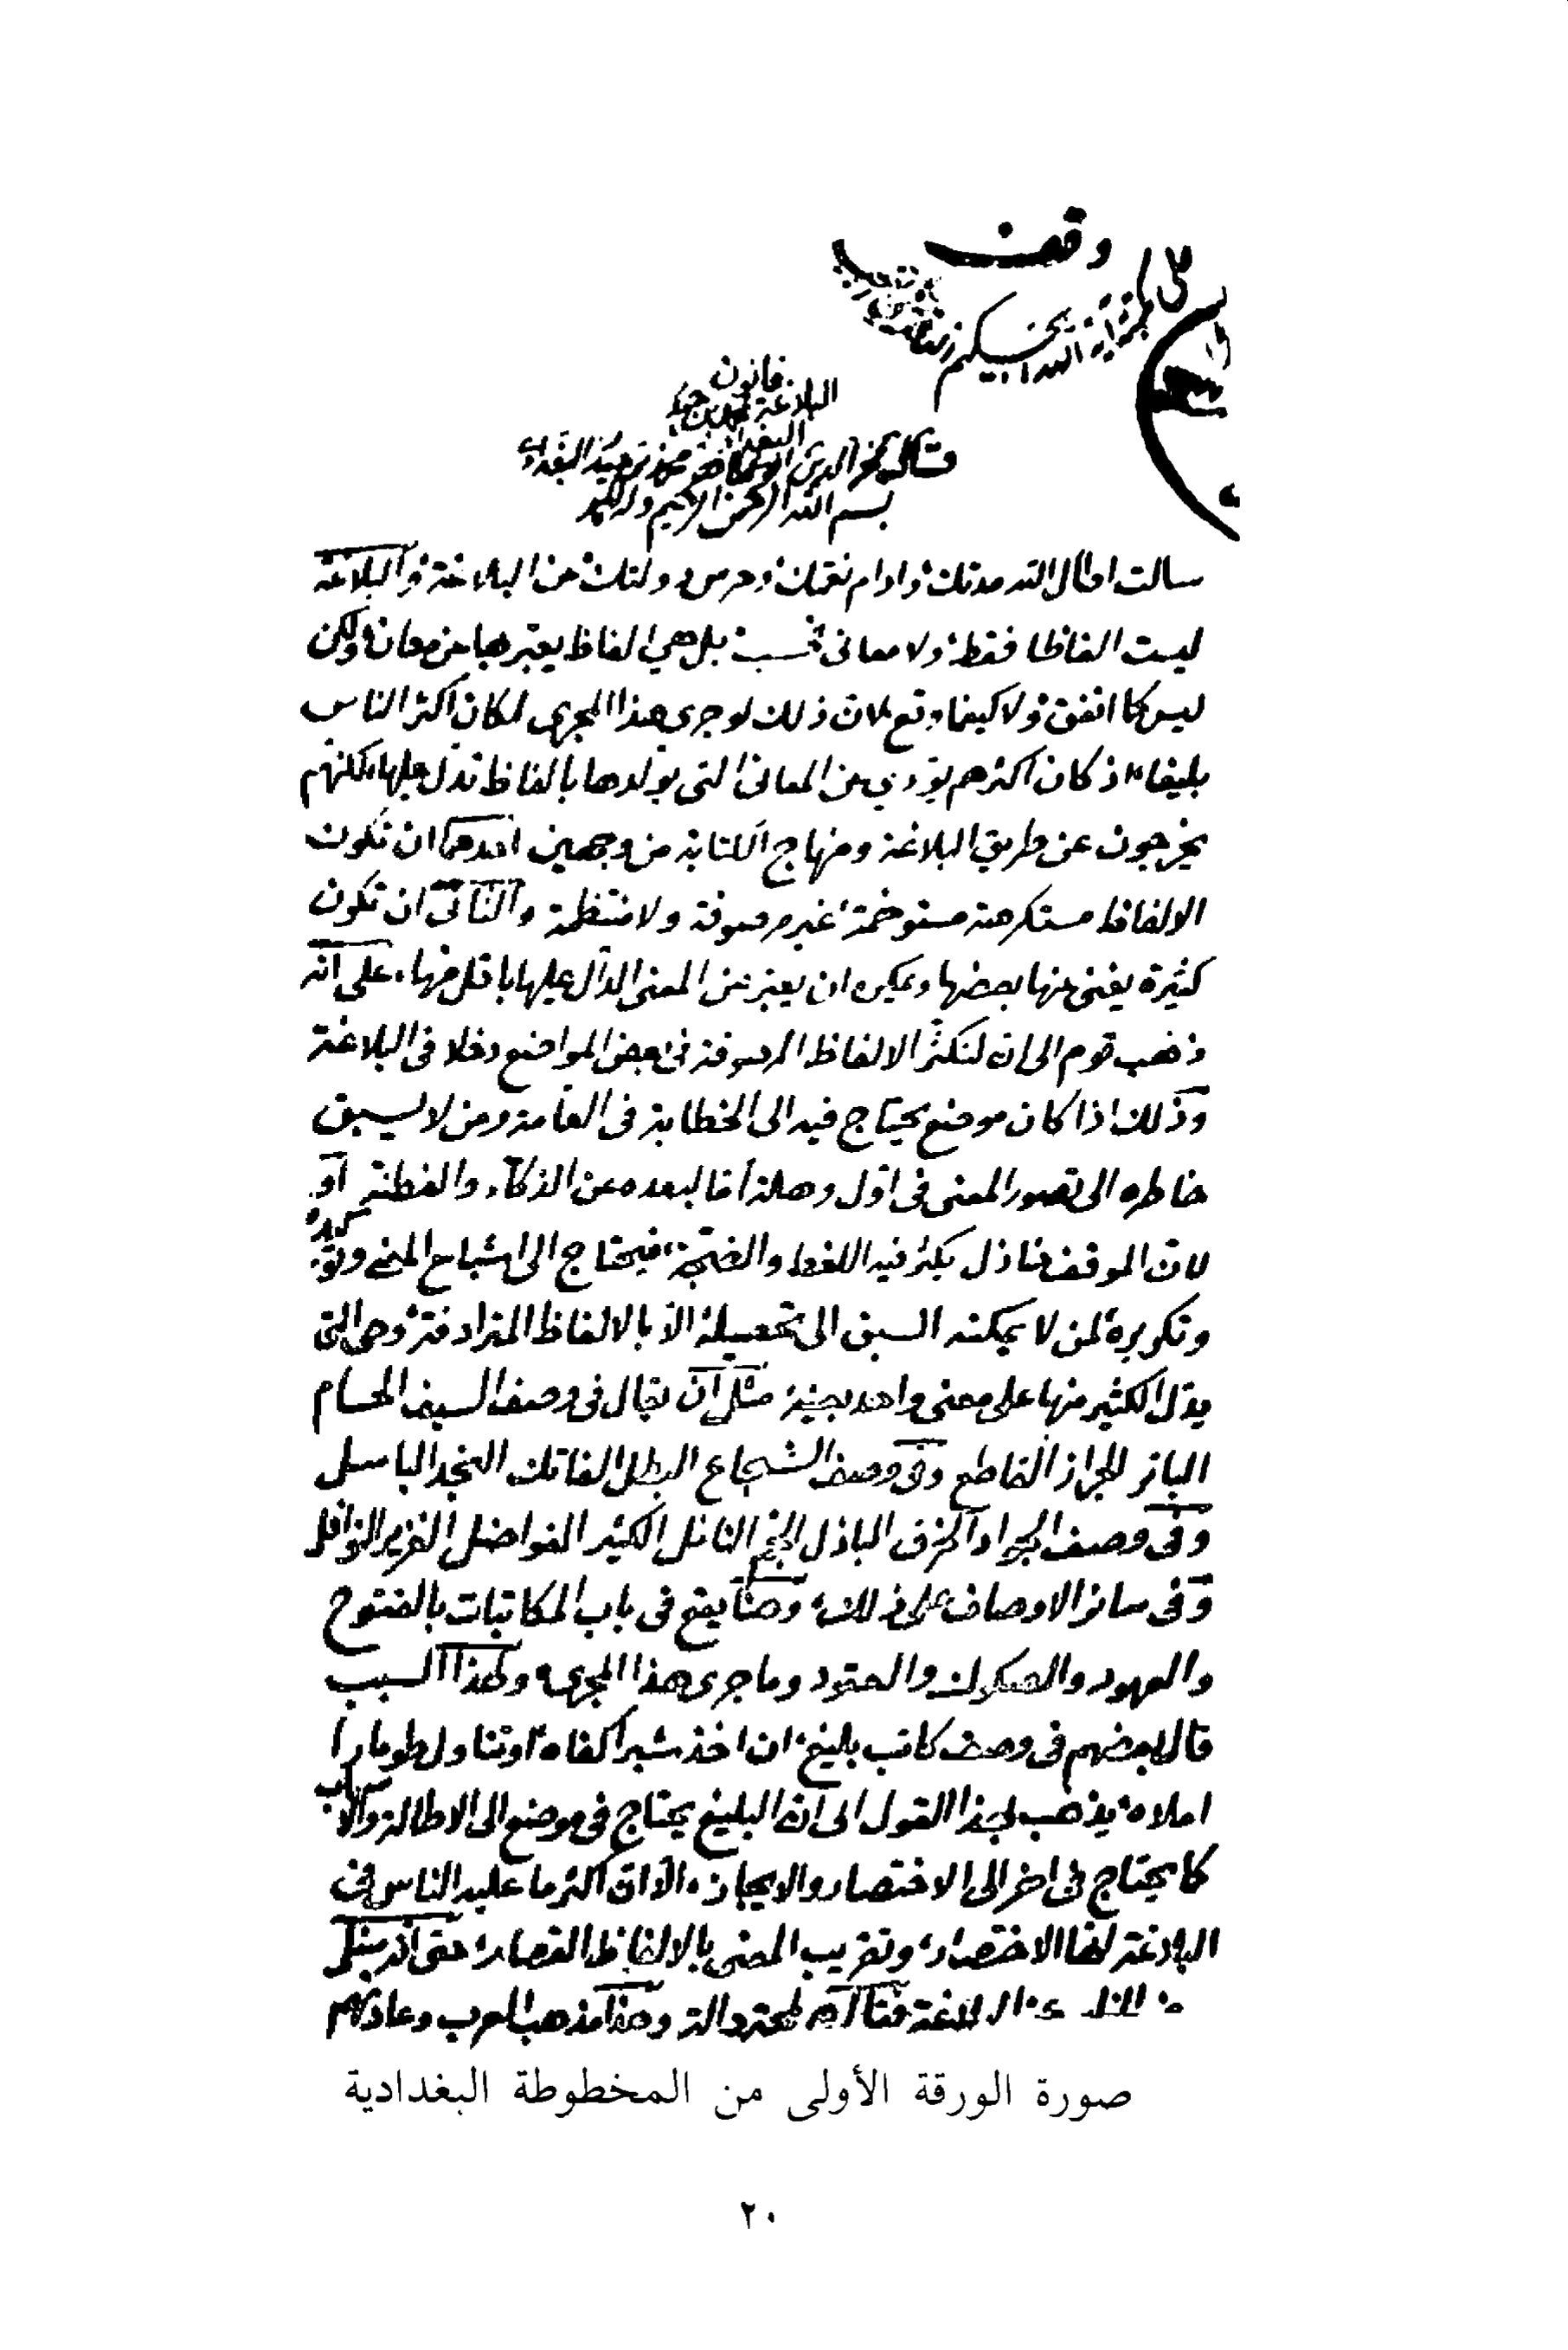 وقف
على
قانون
البلاغة لمحمد بن حيدر
البغدادي
قال فخر الدين محمد بن حيدر البغدادي
بسم الله الرحمن الرحيم
سالت اطال الله مدتك وادام نعمتك وحرس دولتك عن البلاغة والبلاغة
ليست الفاظا فقط ولا معانى فحسب بل هي الفاظ يعبّر بها عن معان ولكن
ليس كما اتفق ولا كيفما وقع لان ذلك لو جرى هذا المجرى لكان اكثر الناس
بليغا اذ كان اكثرهم يؤدي عن المعانى التى يولدها بالفاظ تدل عليها لكنهم
يخرجون عن طريق البلاغة ومنهاج الكتابة من وجهين احدهما ان تكون
الالفاظ مستكرهة مستوخمة غير مرصوفة ولا منتظمة والثانى ان تكون
كثيرة يغنى عنها بعضها ويمكن ان يعبر عن المعنى الدال عليها باقل منها على انّه
ذهب قوم الى ان لتكثّر الالفاظ المرصوفة فى بعض المواضع دخلا فى البلاغة
وذلك اذا كان موضع يحتاج فيه الى الخطابة فى العامة ومن لا يسبق
خاطره الى تصور المعنى فى اوّل وهلة امّا لبعده عن الذكاء والفطنة او
لان الموقف يكثر فيه اللغط والضجّة فيحتاج الى اشباع المعنى وتوكيده
وتكريره لمن لا يمكنه السبق الى تحصيله الّا بالالفاظ المترادفة وهى التى
يدل الكثير منها على معنى واحد بعينه مثل ان يقال فى وصف السيف الحسام
الباتر الجراز القاطع وفى وصف الشجاع البطل الفاتك النجد الباسل
وفى وصف الجواد الخرق الباذل الجمّ النائل الكثير الفواضل الغزير النوافل
وفى سائر الاوصاف على ذلك وهذا يقع فى باب المكاتبات بالفتوح
والعهود والصكوك والعقود وما جرى هذا المجرى ولهذا السبب
قال بعضهم فى وصف كاتب بليغ ان اخذ شبرا كفاه او تناول طومارا
املاه يذهب بهذا القول الى ان البليغ يحتاج فى موضع الى الاطالة والاسهاب
كما يحتاج فى اخر الى الاختصار والايجاز الّا ان اكثر ما عليه الناس فى
البلاغة انها الاختصار وتقريب المعنى بالالفاظ القصار حتى انه سئل
البلاغة فقال لمحة دالة وهذا مذهب العرب وعادتهم
صورة الورقة الأولى من المخطوطة البغدادية
٢٠